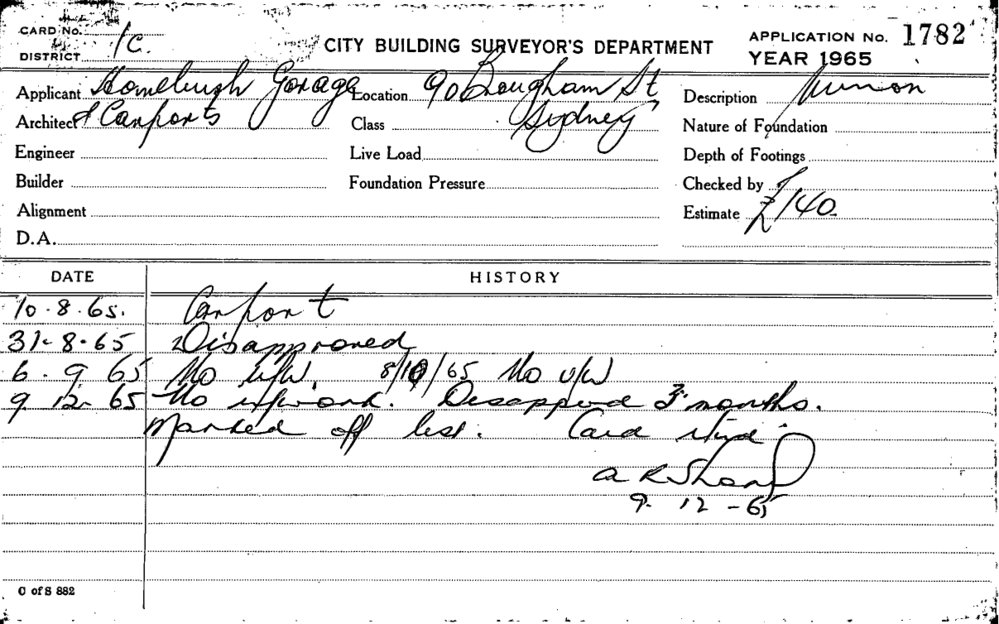 CARD No.
DISTRICT 1C.
CITY BUILDING SURVEYOR'S DEPARTMENT
APPLICATION No. 1782
YEAR 1965
Applicant Homebush Garage Location 90 Brougham St Description
Architect & Carports Class Sydney Nature of Foundation
Engineer Live Load Depth of Footings
Builder Foundation Pressure Checked by
Alignment Estimate £140
D.A.
DATE HISTORY
10.8.65. Carport
31-8-65 Disapproved
6.9.65 No U/W. 8/10/65 No U/W
9 12 65 No u/work. Disappvd 3 months.
Marked off list. Card
9-12-65
C of S 882